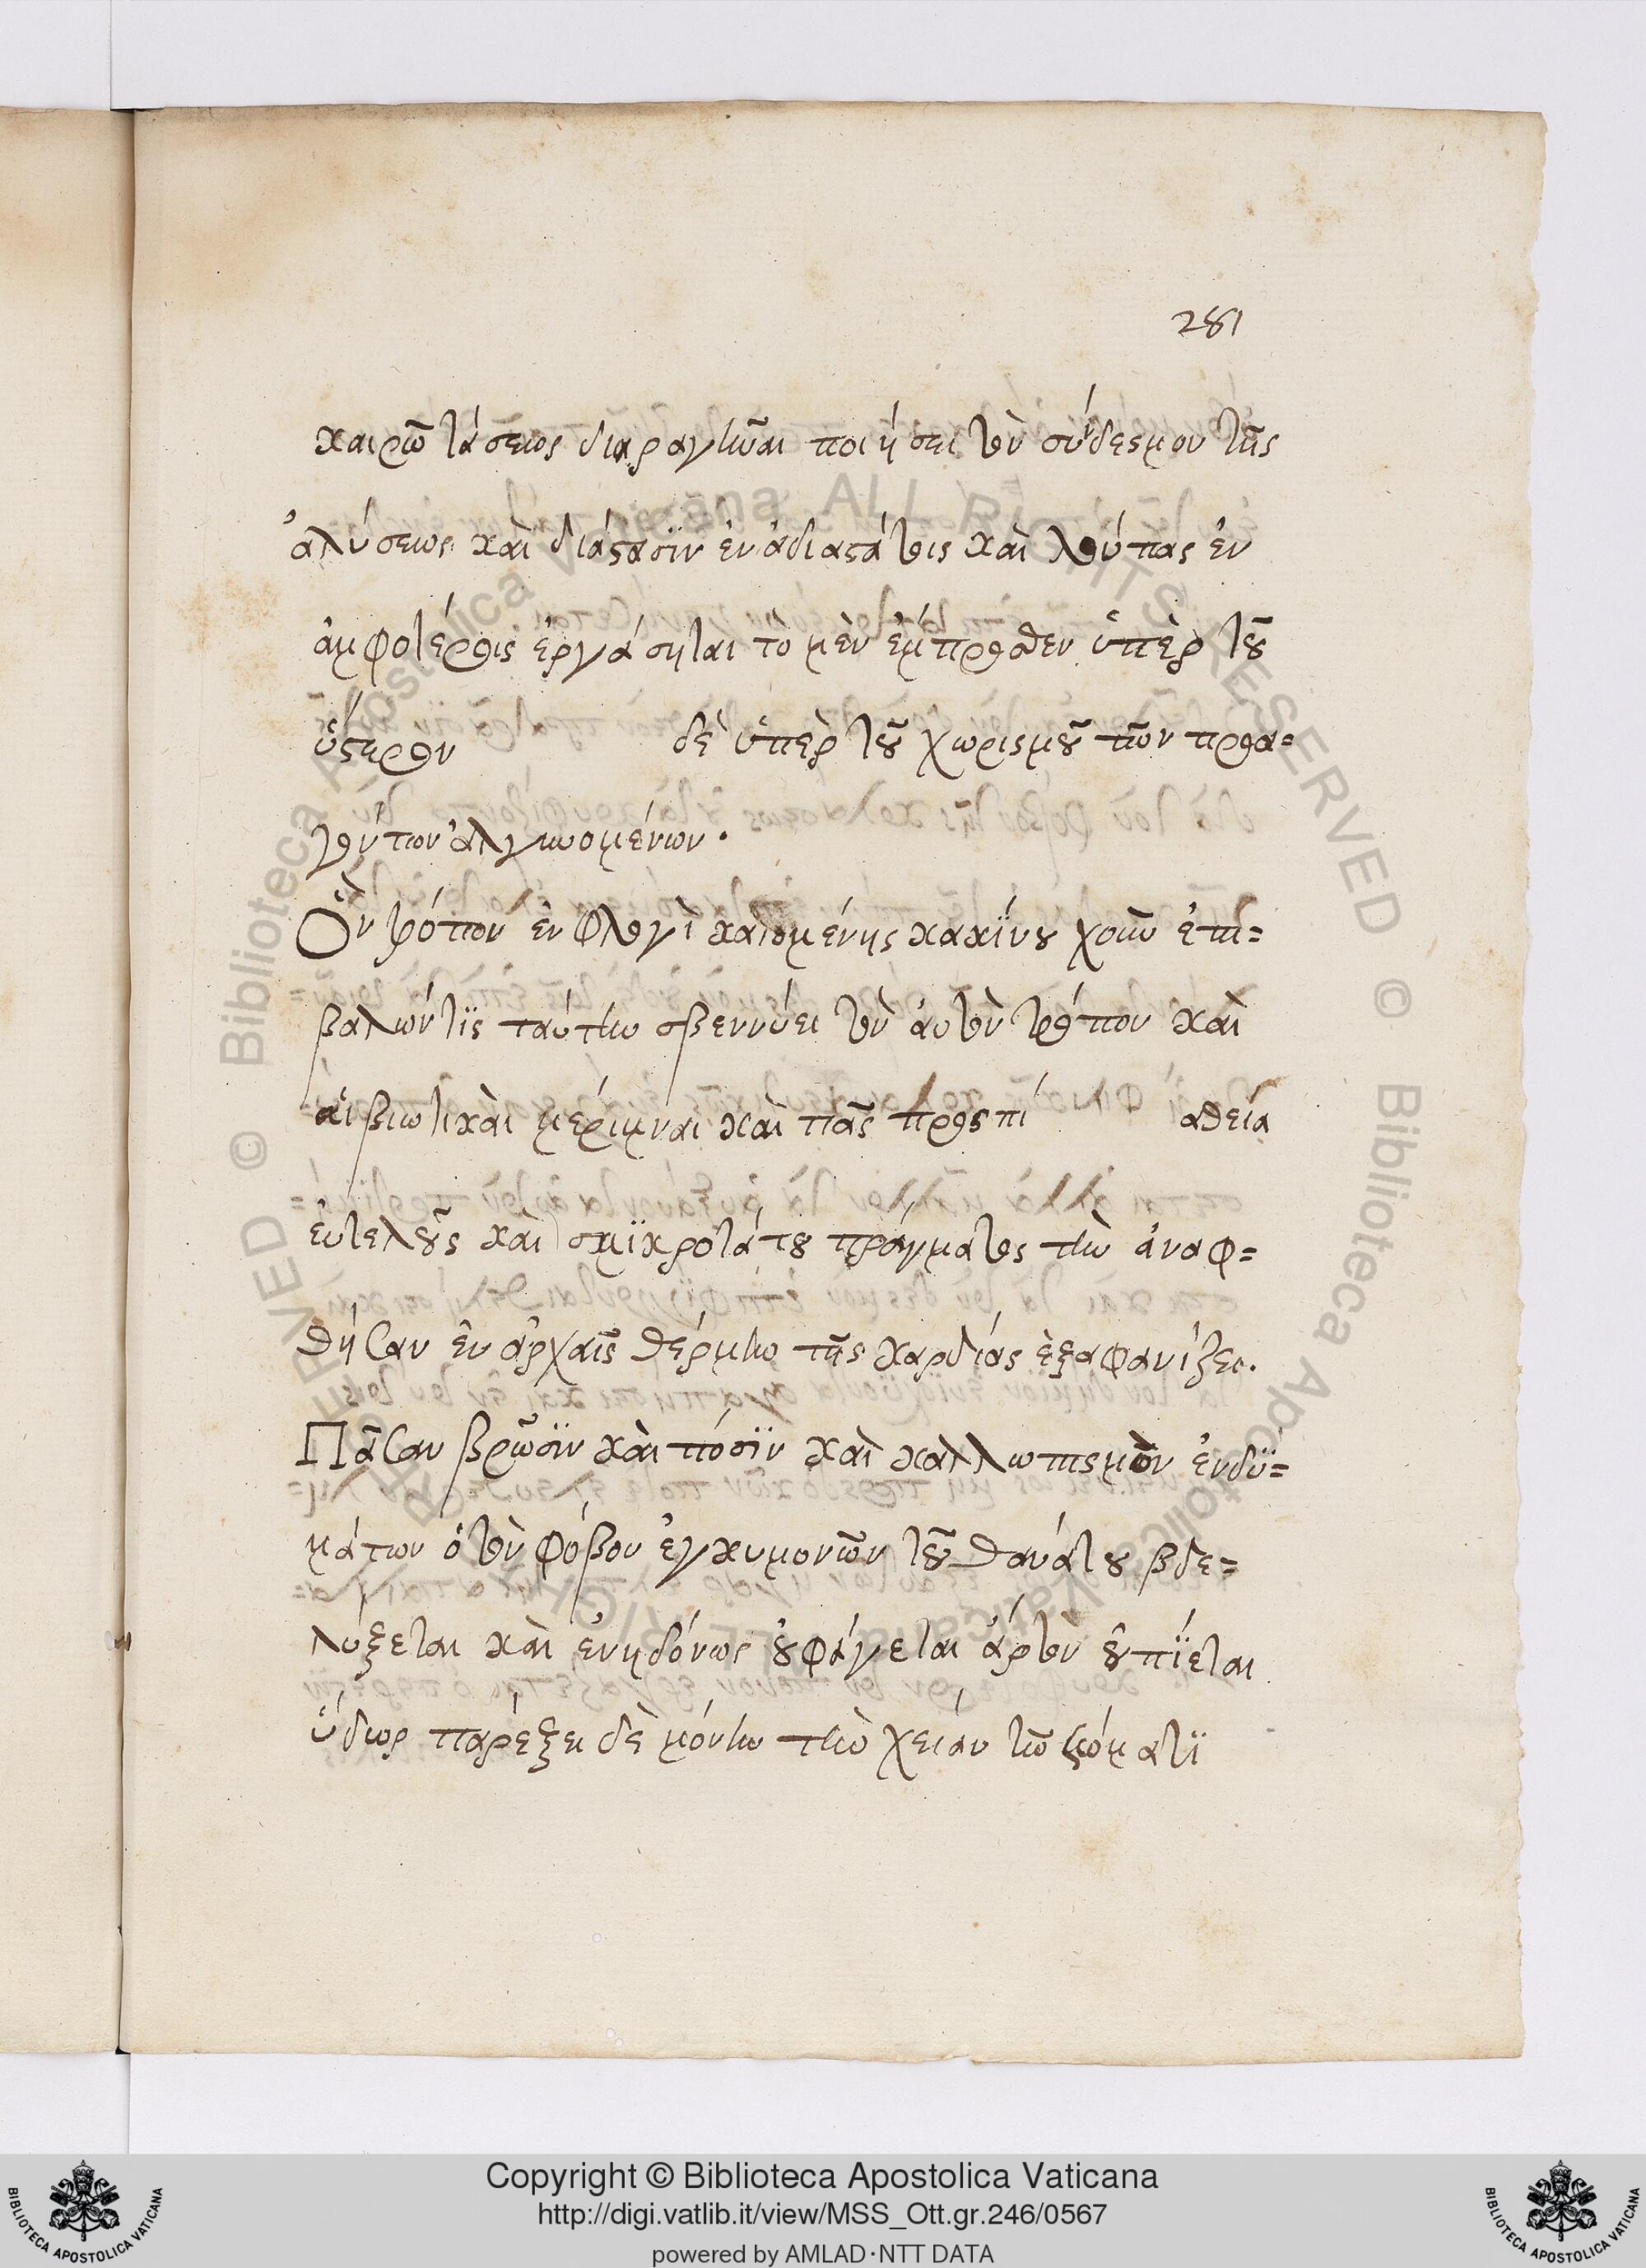 281
καιρῶ τάσεως διαραγῆναι ποιήσει τὸν σύνδεσμον τῆς
ἀλύσεως καὶ διάστασϊν ἐν ἀδιαστάτοις καὶ λύπας ἐν
ἀμφοτέροις ἐργάσηται τὸ μὲν ἐμπροσθεν ὑπὲρ τοῦ
ὕστερον δὲ ὑπὲρ τοῦ χωρισμοῦ τῶν προα=
γόντων ἀλγυνομένων.
Ὃν τρόπον ἐν φλογὶ καιομένης κακίνου χοῦν ἐπι=
βαλών τϊς ταύτην σβεννύει τὸν αὐτὸν τρόπον καὶ
αἱ βιωτικαὶ μέριμναι καὶ πᾶς προσπί αθεία
εὐτελοῦς καὶ σμϊκροτάτου πράγματος τὴν ἀναφ=
θήσαν ἐν ἀρχαῖς θέρμην τῆς καρδίας ἐξαφανίζει.
Πᾶσαν βρῶσϊν καὶ πόσϊν καὶ καλλωπισμὸν ἐνδϋ=
μάτων ὁ τὸν φόβον ἐγκυμονῶν τοῦ θανάτου βδε=
λύξεται καὶ ἐνηδόνως οὐ φάγεται ἄρτὸν οὐ πίεται
ὕδωρ παρέξει δὲ μόνην τὴν χείαν τῶ σώματϊ
Copyright © Biblioteca Apostolica Vaticana
http://digi.vatlib.it/view/MSS_Ott.gr.246/0567
powered by AMLAD·NTT DATA